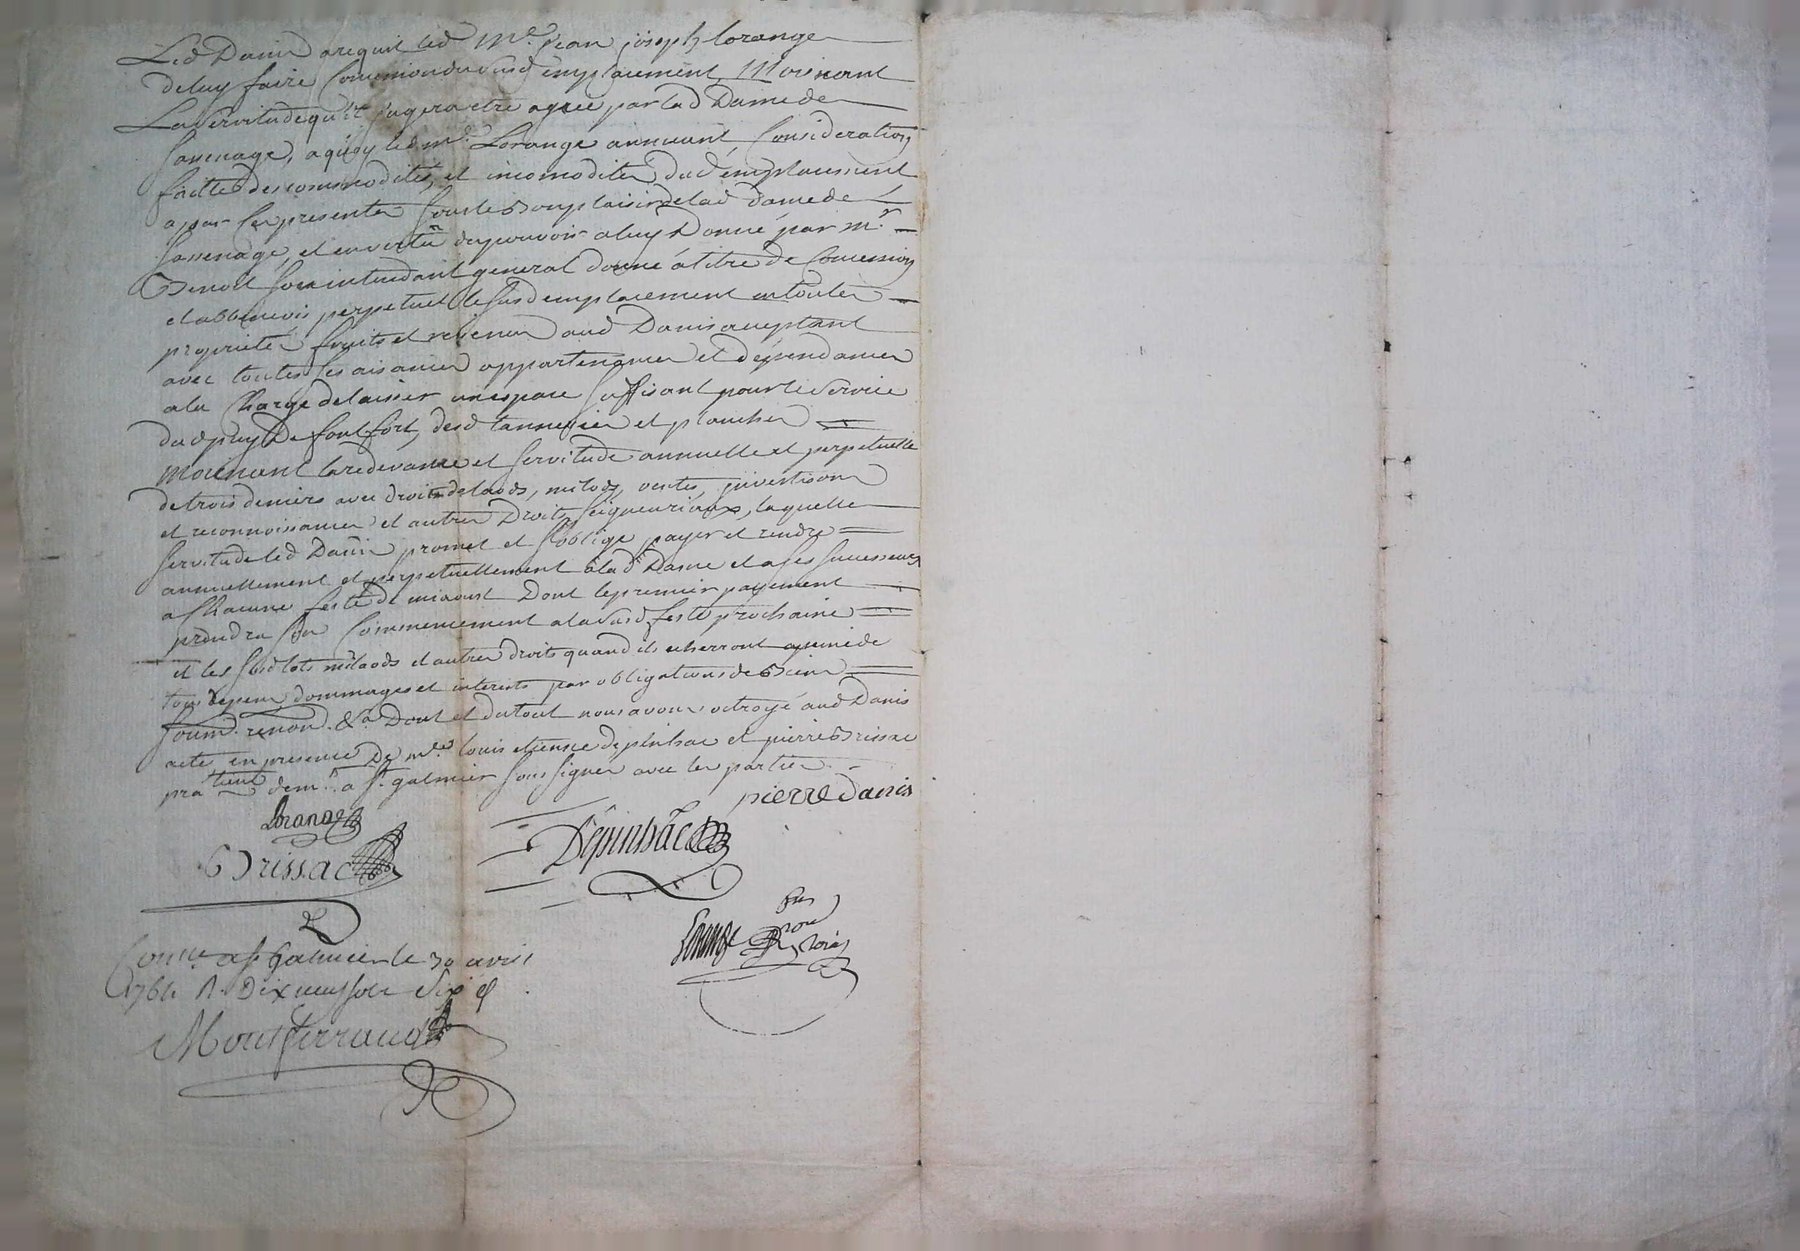 Led Danis arequit led Me. jean joseph lorange
deluy faire Concession du susd emplacement, Moienant
La servitude qu'il jugera etre agreé par lad Dame de
sassenage, aquoy led me. Lorange annuant, Consideration
faitte des commodités, et incomodités dud emplacement
a par ces presentes sous le bon plaisir de lad dame de
sassenage, et en vertu du pouvoir a luy Donné par mr.
Benoit son intendant general donné a titre de Concession
et abbenevis perpetuel le susd emplacement en toutes
proprietés fruits et revenus aud Danis aceptant
avec toutes ses aisances appartenances et dependances
ala Charge delaisser un espace suffisant pour le service
dud puy De font fort, desd tanneries et plancher
moienant la redevance et servitude annuelle et perpetuelle
de trois deniers avec droits de laods, milods, ventes, investisons
et reconnoissances et autres Droits seigneuriaux, laquelle
servitude led Danis promet et s'oblige payer et rendre
annuellement et perpetuellement alad Dame et a ses successeurs
a Chacune feste de miaoust Dont le premier payement
prendra son Commencement a la susd feste prochaine
et les susd lots milaods et autres droits quand ils echerront a peine de
tous depens, dommages et interests par obligations de biens
soum. renon. &a. Dont et du tout nous avons octroyé aud Danis
acte en presence De mes. louis etienne depinhac et pierre Brissac
praticiens dem.ts a st. galmier soussignes avec les parties
pierre danis
Lorange
Depinhac
Brissac
Lorange
Con.lé a st Galmier le 30 avril
1764 R. Dix neuf sols six d
Montferrand